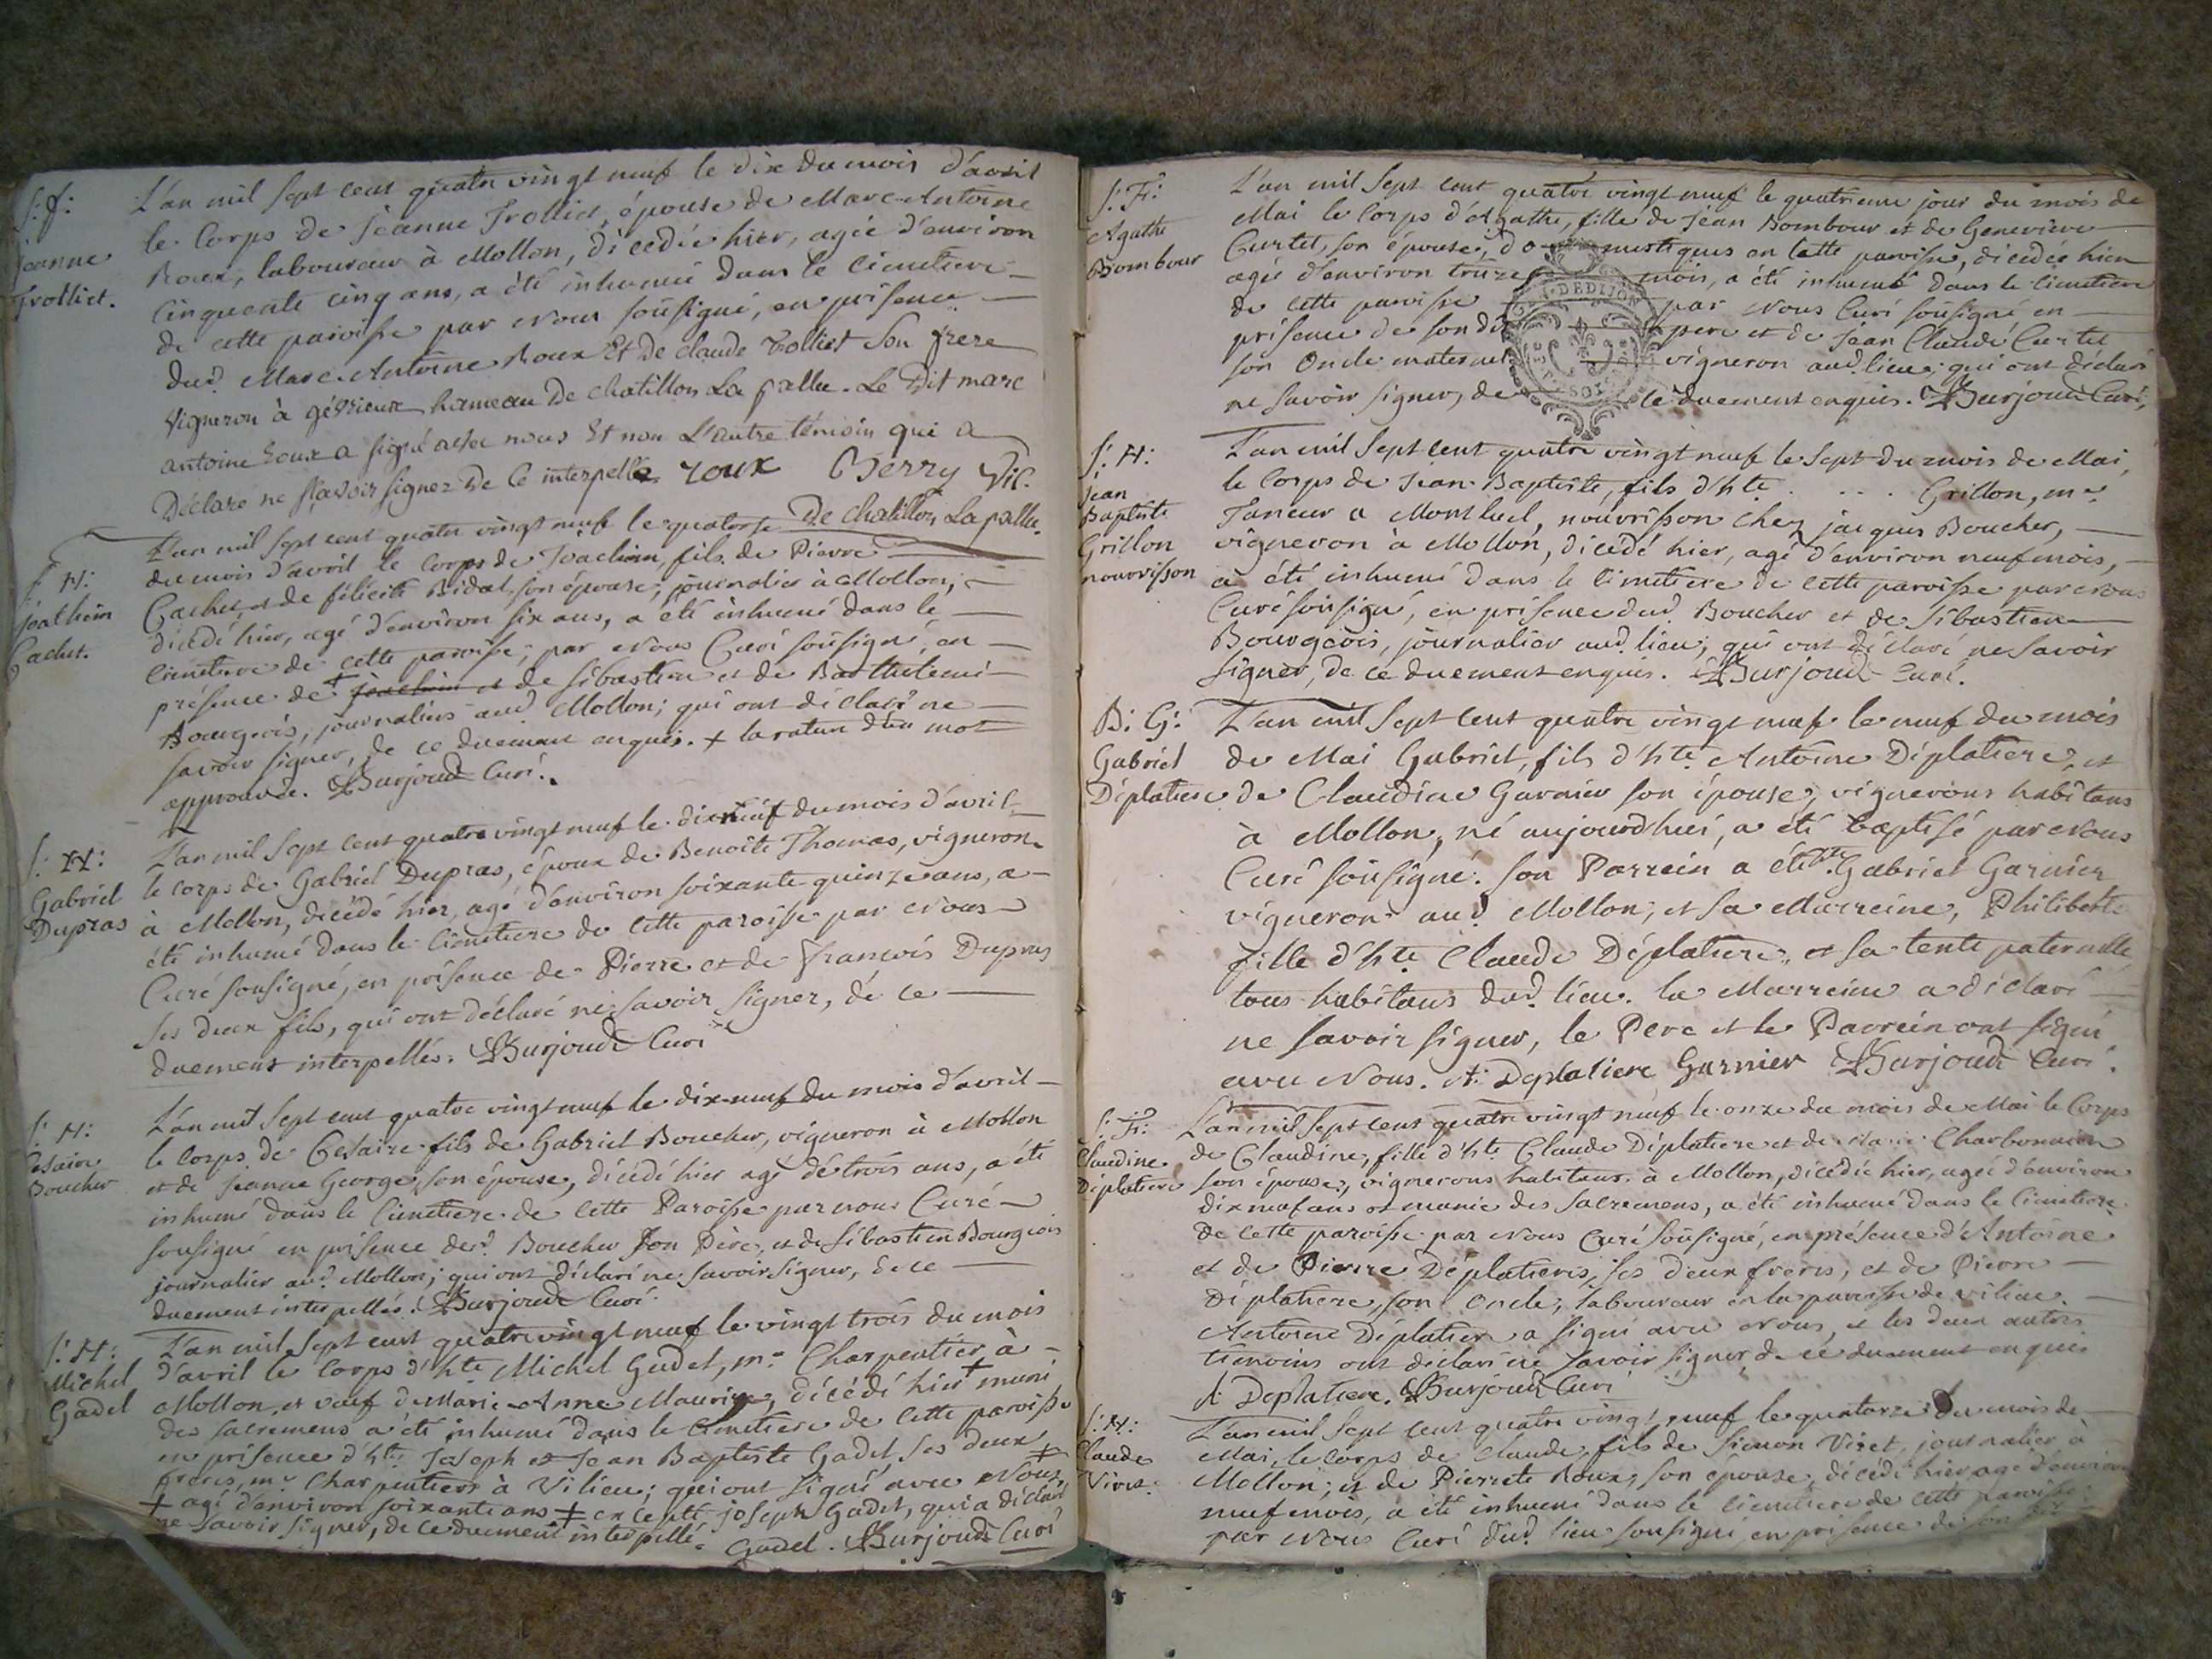 S: f:
jeanne
Trolliet.
L'an mil sept cent quatre vingt neuf le dix du mois d'avril
le Corps de Jeanne Trolliet, épouse de Marc-Antoine
Roux, laboureur à Mollon, décédée hier, agée d'environ
cinquante cinq ans, a été inhumée dans le cimetiere
de cette paroisse par Nous soussigné, en présence
dud. Marc-Antoine Roux Et de claude trolliet son frere
vigneron à gévrieux hameau De chatillon La pallu. Le Dit marc
antoine Roux a signé avec nous Et non L'autre témoin qui a
Déclaré ne sçavoir signer De Ce interpellé roux Berry Vic.
De chatillon La pallu.
S: H:
joachim
Cachet.
L'an mil sept cent quatre vingt neuf le quatorze
du mois d'avril le Corps de Joachim, fils de Pierre
Cachet, et de félicité Bidat, son épouse, journalier à Mollon,
décédé hier, agé d'environ six ans, a été inhumé dans le
cimetiere de cette paroisse, par Nous Curé soussigné, en
présence de + joachim et de Sébastien et de Barthelemi
Bourgeois, journaliers aud. Mollon; qui ont déclaré ne
savoir signer, de ce duement enquis. + la rature d'un mot
approuvée. Burjoud Curé.
S: H:
Gabriel
Dupras
L'an mil sept cent quatre vingt neuf le dix neuf du mois d'avril
le corps de Gabriel Dupras, époux de Benoîte Thomas, vigneron
à Mollon, décédé hier, agé d'environ soixante quinze ans, a
été inhumé dans le cimetiere de cette paroisse par Nous
Curé soussigné, en présence de Pierre et de François Dupras
ses deux fils, qui ont déclaré ne savoir signer, de ce
duement interpellés. Burjoud Curé
S: H:
Césaire
Boucher
L'an mil sept cent quatre vingt neuf le dix-neuf du mois d'avril
le corps de Césaire fils de Gabriel Boucher, vigneron à Mollon
et de Jeanne George, son épouse, décédé hier agé de trois ans, a été
inhumé dans le Cimetiere de cette Paroisse par nous Curé
soussigné en présence dud. Boucher son Père, et de Sébastien Bourgeois
journalier aud. Mollon; qui ont déclaré ne savoir signer, de ce
duement interpellés. Burjoud Curé.
S: H:
Michel
Gadel
L'an mil sept cent quatre vingt neuf le vingt trois du mois
d'avril le Corps d'hte. Michel Gadel, me. Charpentier à
Mollon, et veuf de Marie-Anne Maurize, décédé hier + muni
des sacremens a été inhumé dans le cimetiere de cette paroisse
en présence d'hte. Joseph et Jean Baptiste Gadel, ses deux
freres, me. Charpentiers à Vilieu; qui ont signé avec Nous, +
+ agé d'environ soixante ans + excepté joseph Gadel, qui a déclaré
ne savoir signer, de ce duement interpellé. Gadel. Burjoud Curé
S: F:
Agathe
Bombour
L'an mil sept cent quatre vingt neuf le quatrieme jour du mois de
Mai le Corps d'Agathe, fille de Jean Bombour et de Genevieve
Curtet, son épouse, domestiques en cette paroisse, décédée hier
agée d'environ treize mois, a été inhumée dans le cimetiere
de cette paroisse par Nous Curé soussigné en
présence de son dit pere et de Jean Claude Curtet
son Oncle maternel vigneron aud. lieu; qui ont déclaré
ne savoir signer, de ce duement enquis. Burjoud Curé,
S: H:
jean
Baptiste
Grillon
nourrisson
L'an mil sept cent quatre vingt neuf le sept du mois de Mai,
le Corps de Jean-Baptiste, fils d'hte. . . . Grillon, me.
Taneur a Montluel, nourrisson chez jacques Boucher,
vigneron à Mollon, décédé hier, agé d'environ neuf mois,
a été inhumé dans le cimetiere de cette paroisse par Nous
Curé soussigné, en présence dud. Boucher et de Sébastien
Bourgeois, journalier aud. lieu; qui ont déclaré ne savoir
signer, de ce duement enquis. Burjoud Curé.
B: G:
Gabriel
Déplatiere
L'an mil sept cent quatre vingt neuf le neuf du mois
de Mai Gabriel, fils d'hte. Antoine Déplatiere, et
de Claudine Garnier son épouse, vignerons habitans
à Mollon, né aujourdhui, a été baptisé par Nous
Curé soussigné. son Parrein a été hte. Gabriel Garnier
vigneron aud. Mollon; et sa Marreine, Philiberte
fille d'hte. Claude Déplatiere, et sa tente paternelle
tous habitans dud. lieu. la Marreine a déclaré
ne savoir signer, le Pere et le Parrein ont signé
avec Nous. A: Deplatiere Garnier Burjoud Curé.
S: F:
Claudine
Déplatiere
L'an mil sept cent quatre vingt neuf le onze du mois de Mai le Corps
de Claudine, fille d'hte. Claude Déplatiere et de Marie Charbonnier
son épouse, vignerons habitans à Mollon, décédée hier, agée d'environ
dix neuf ans et munie des sacremens, a été inhumée dans le cimetiere
de cette paroisse par Nous Curé soussigné, en présence d'Antoine
et de Pierre Déplatieres, ses deux freres, et de Pierre
Déplatiere, son Oncle, laboureur en la paroisse de vilieu.
Antoine Déplatiere a signé avec Nous, et les deux autres
témoins ont déclaré ne savoir signer de ce duement enquis
A: Deplatiere. Burjoud Curé
S: H:
Claude
Viret.
L'an mil sept cent quatre vingt neuf le quatorze du mois de
Mai, le corps de Claude, fils de Simon Viret, journalier à
Mollon; et de Pierrete Roux, son épouse, décédé hier, agé d'environ
neuf mois, a été inhumé dans le cimetiere de cette paroisse
par Nous Curé dud. lieu soussigné, en présence de son